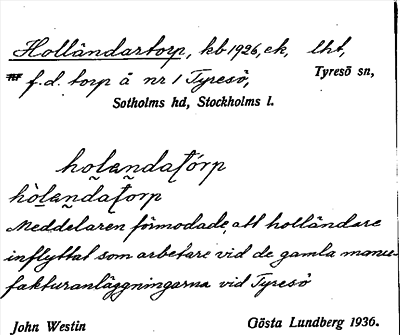 Holländartorp, kb 1926, ek, lht, Tyresö sn,
f.d. torp å nr 1 Tyresö,
Sotholms hd, Stockholms l.
hola̰ndat̰órp
hòla̰ndat̰orp
Meddelaren förmodade, att holländare
inflyttat som arbetare vid de gamla manu-
fakturanläggningarna vid Tyresö
John Westin Gösta Lundberg 1936.